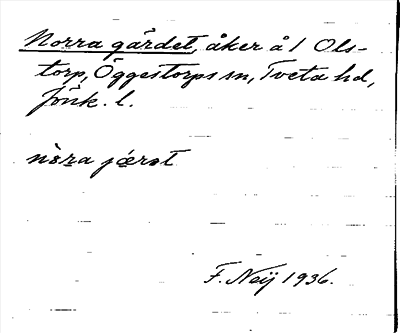 Norra gärdet, åker å 1 Ols-
torp, Öggestorps sn, Tveta hd,
Jönk. l.
nòra jæret
F. Neij 1936.